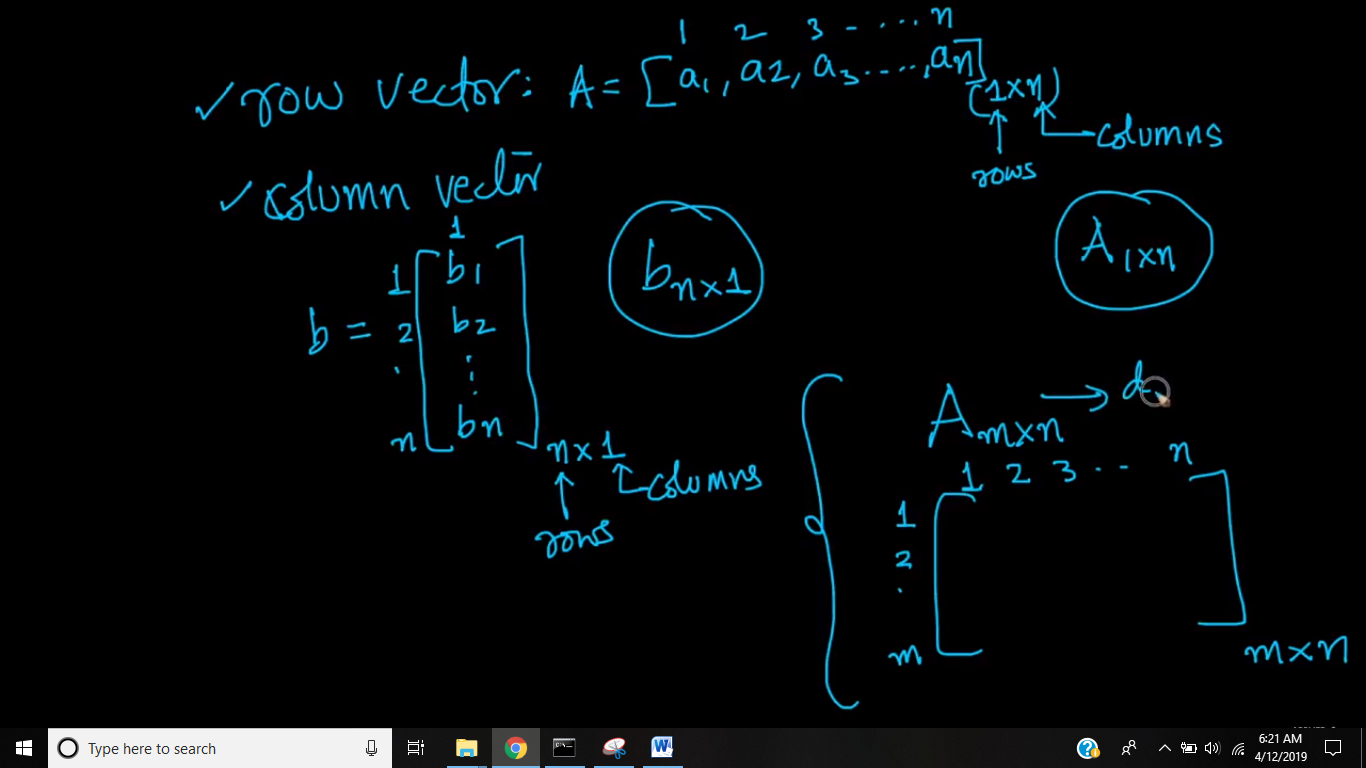 1 2 3 - .... n
✓ row vector: A = [a1, a2, a3 ...., an] (1×n)
columns
rows
✓ column vector
1
1 b1
b = 2 b2
. ⋮
n bn n×1
columns
rows
b n×1
A 1×n
A m×n → d
1 2 3 .. n
1
2
.
m
m×n
Type here to search
6:21 AM
4/12/2019